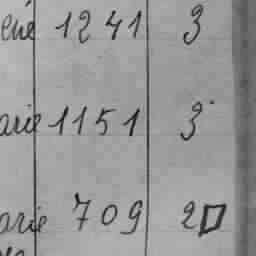 ené 1241 3
arie 1151 3
arie 709 2